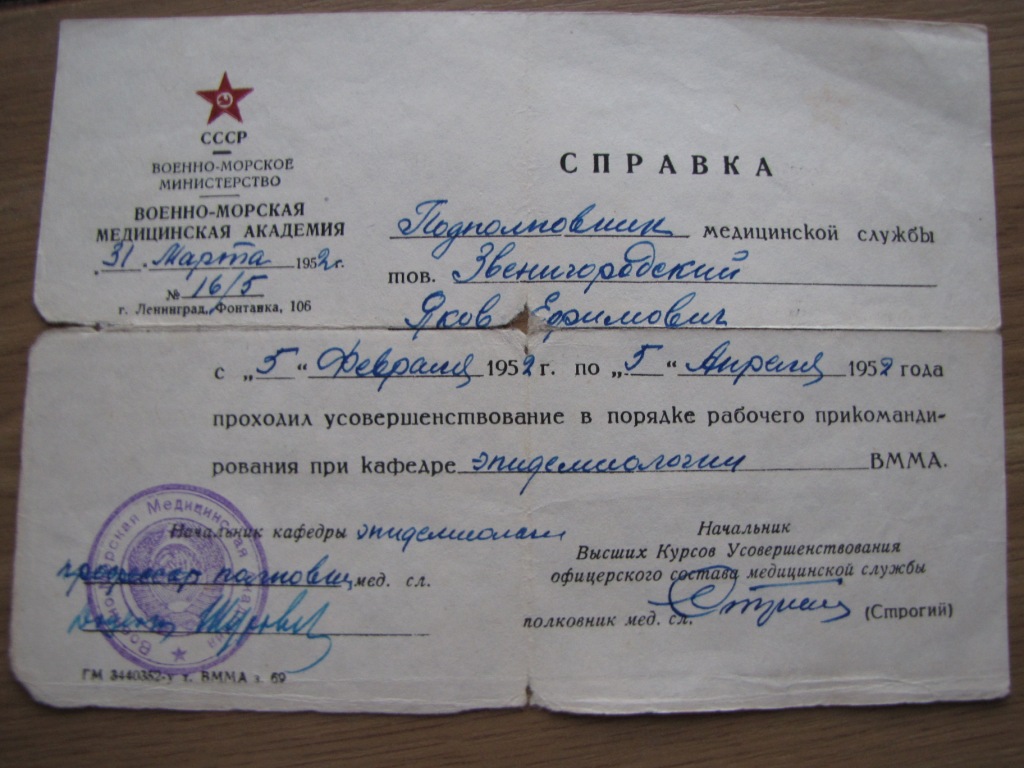 СССР
ВОЕННО-МОРСКОЕ
МИНИСТЕРСТВО
ВОЕННО-МОРСКАЯ
МЕДИЦИНСКАЯ АКАДЕМИЯ
31 Марта 1952 г.
№ 16/5
г. Ленинград, Фонтанка, 106
СПРАВКА
Подполковник медицинской службы
тов. Звенигородский
Яков Ефимович
с „5“ Февраля 1952 г. по „5“ Апреля 1952 года
проходил усовершенствование в порядке рабочего прикоманди-
рования при кафедре эпидемиологии ВММА.
Начальник кафедры эпидемиологии
полковник мед. сл.
Начальник
Высших Курсов Усовершенствования
офицерского состава медицинской службы
полковник мед. сл. (Строгий)
Военно-Морская Медицинская Академия
ГМ 3440352-у т. ВММА з. 69